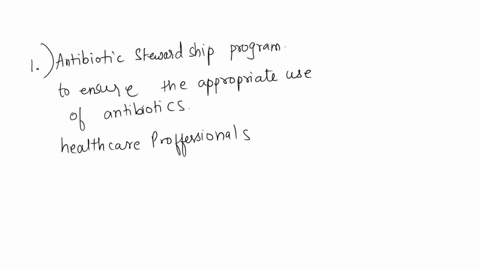 1.) Antibiotic stewardship program.
to ensure the appropriate use
of antibiotics.
healthcare Proffersionals